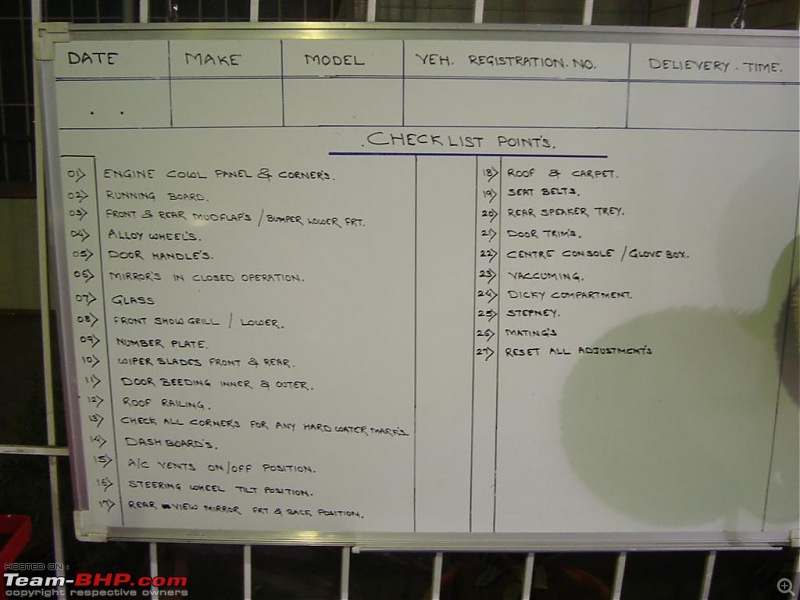 DATE MAKE MODEL VEH. REGISTRATION.NO. DELIEVERY.TIME.
. .
.CHECKLIST POINT'S.
01> ENGINE COWL PANEL & CORNER'S.
02> RUNNING BOARD.
03> FRONT & REAR MUDFLAP'S / BUMPER LOWER FRT.
04> ALLOY WHEEL'S.
05> DOOR HANDLE'S.
06> MIRROR'S IN CLOSED OPERATION.
07> GLASS
08> FRONT SHOW GRILL / LOWER.
09> NUMBER PLATE.
10> WIPER BLADES FRONT & REAR.
11> DOOR BEEDING INNER & OUTER.
12> ROOF RAILING.
13> CHECK ALL CORNERS FOR ANY HARD WATER MARK'S.
14> DASHBOARD'S.
15> A/C VENTS ON/OFF POSITION.
16> STEERING WHEEL TILT POSITION.
17> REAR VIEW MIRROR FRT & BACK POSITION.
18> ROOF & CARPET.
19> SEAT BELTS.
20> REAR SPEAKER TREY.
21> DOOR TRIM'S.
22> CENTRE CONSOLE / GLOVE BOX.
23> VACCUMING.
24> DICKY COMPARTMENT.
25> STEPNEY.
26> MATING'S
27> RESET ALL ADJUSTMENT'S
HOSTED ON :
Team-BHP.com
copyright respective owners